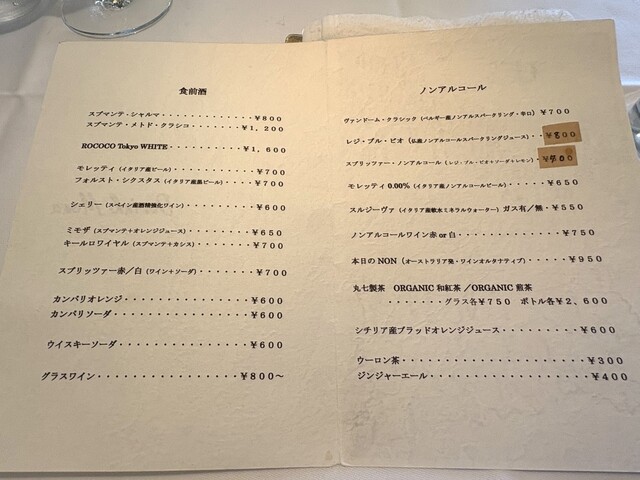 食前酒
スプマンテ・シャルマ・・・・・・・・・・・・・¥800
スプマンテ・メトド・クラシコ・・・・・・・・¥1,200
ROCOCO Tokyo WHITE・・・・・・・・・・¥1,600
モレッティ（イタリア産ビール）・・・・・・・・・¥700
フォルスト・シクスタス（イタリア産黒ビール）・・・・¥700
シェリー（スペイン産酒精強化ワイン）・・・・・・・・¥600
ミモザ（スプマンテ＋オレンジジュース）・・・・・・・¥650
キールロワイヤル（スプマンテ＋カシス）・・・・・・・¥700
スプリッツァー赤／白（ワイン＋ソーダ）・・・・・・・¥700
カンパリオレンジ・・・・・・・・・・・・・・¥600
カンパリソーダ・・・・・・・・・・・・・・・¥600
ウイスキーソーダ・・・・・・・・・・・・・・¥600
グラスワイン・・・・・・・・・・・・・・・・¥800～
ノンアルコール
ヴァンドーム・クラシック（ベルギー産ノンアルコールスパークリング・辛口）¥700
レジ・ブル・ビオ（仏産ノンアルコールスパークリングジュース）・・・¥800
スプリッツァー・ノンアルコール（レジ・ブル・ビオ＋ソーダ＋レモン）・¥900
モレッティ 0.00%（イタリア産ノンアルコールビール）・・・・・¥650
スルジーヴァ（イタリア産軟水ミネラルウォーター）ガス有／無・¥550
ノンアルコールワイン赤 or 白・・・・・・・・・・・・¥750
本日の NON（オーストラリア発・ワインオルタナティブ）・・・・・¥950
丸七製茶　ORGANIC 和紅茶 ／ORGANIC 煎茶
・・・・・・・グラス各¥750　ボトル各¥2,600
シチリア産ブラッドオレンジジュース・・・・・・・・・¥600
ウーロン茶・・・・・・・・・・・・・・・・・・・¥300
ジンジャーエール・・・・・・・・・・・・・・・・¥400